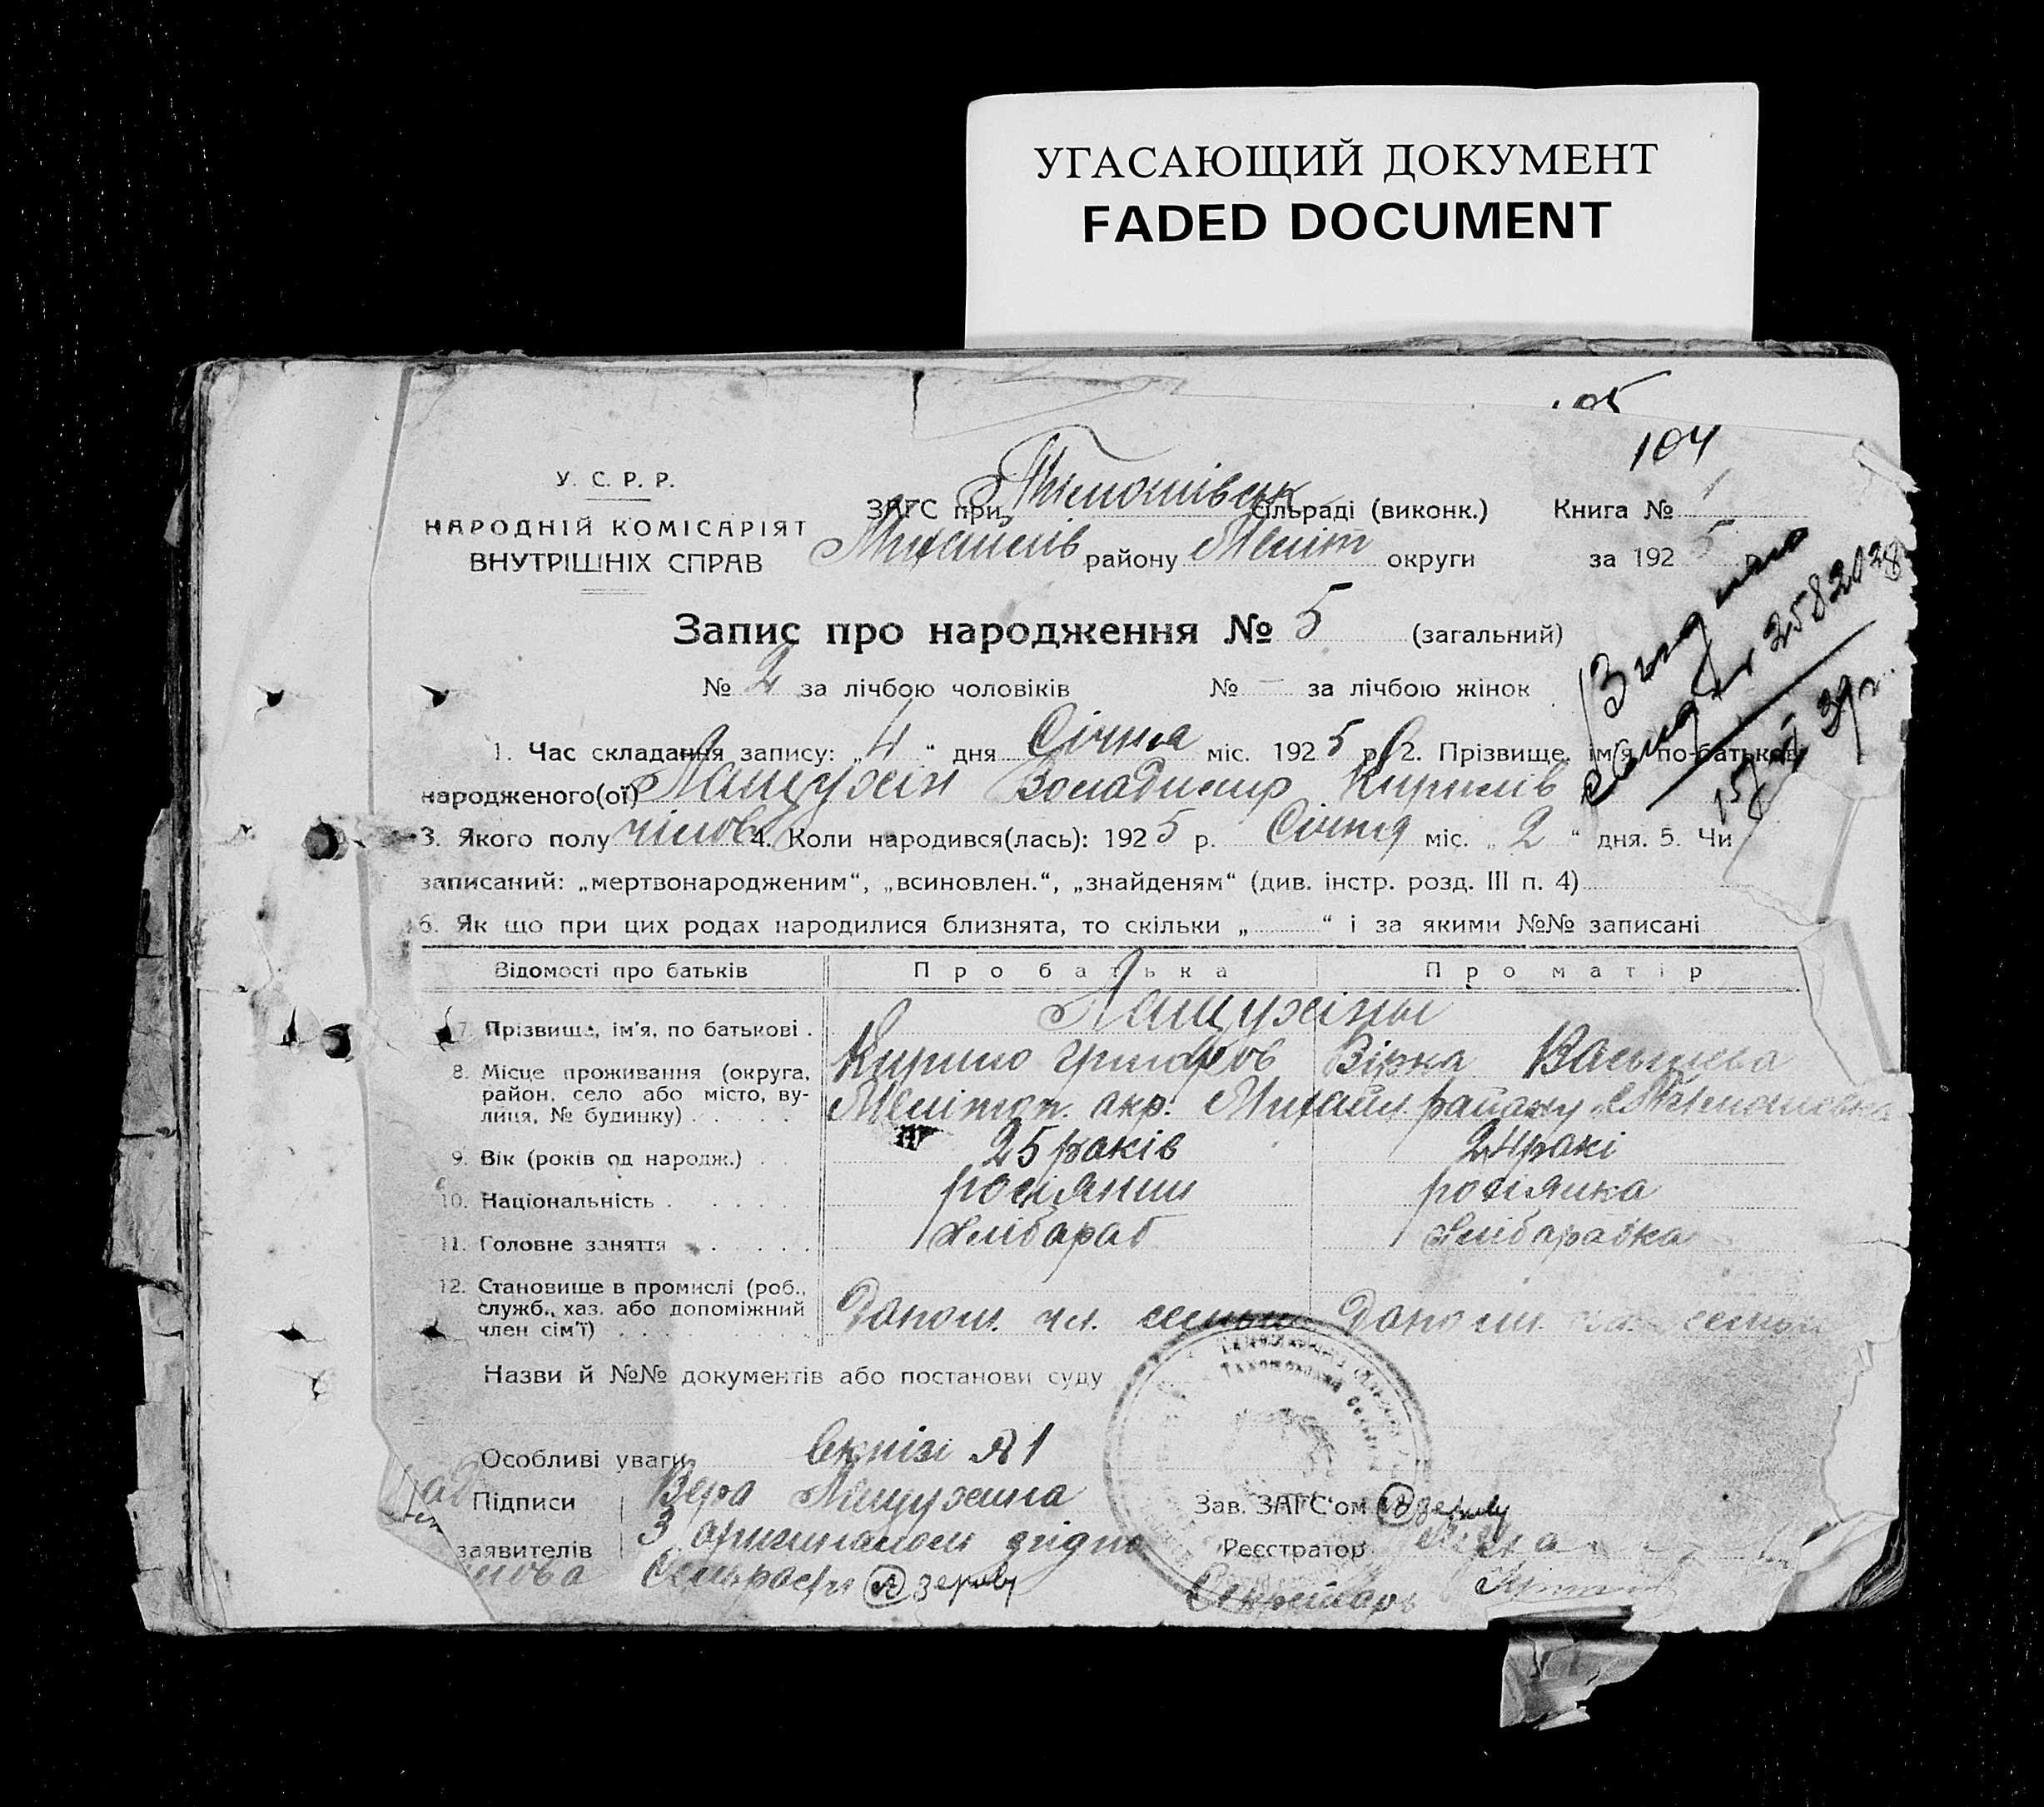 УГАСАЮЩИЙ ДОКУМЕНТ
FADED DOCUMENT
105
104
У. С. Р. Р.
НАРОДНІЙ КОМІСАРІЯТ
ВНУТРІШНІХ СПРАВ
ЗАГС при Тимошівськ сільраді (виконк.) Книга № 1
Михайлів району Меліт округи за 1925 р.
Запис про народження № 5 (загальний)
№ 2 за лічбою чоловіків № — за лічбою жінок
1. Час складання запису: „4“ дня Січня міс. 1925 р. 2. Прізвище, ім'я, по-батькові
народженого(ої) Лащухін Володимир Кирилів
3. Якого полу чілов 4. Коли народився(лась): 1925 р. Січня міс. „2“ дня. 5. Чи
записаний: „мертвонародженим“, „всиновлен.“, „знайденям“ (див. інстр. розд. III п. 4)
6. Як що при цих родах народилися близнята, то скільки „ “ і за якими №№ записані
Відомості про батьків Про батька Про матір
7. Прізвище, ім'я, по батькові . Лащухіны
Кирило Григоров Вірка Васылева
8. Місце проживання (округа, район, село або місто, вулиця, № будинку) Меліто́п. окр. Михайл. району с. Тимошовка
9. Вік (років од народж.) 25 років 24 рокі
10. Національність росіянин росіянка
11. Головне заняття хлібароб хлібаробка
12. Становище в промислі (роб., служб., хаз. або допоміжний член сім'ї) Допом. чл. семьи Допом. чл. семьи
Назви й №№ документів або постанови суду
Особливі уваги вкнізі № 1
Підписи Вера Лащухина Зав. ЗАГС'ом
заявителів З оригиналом згідно Реєстратор
Секретарь